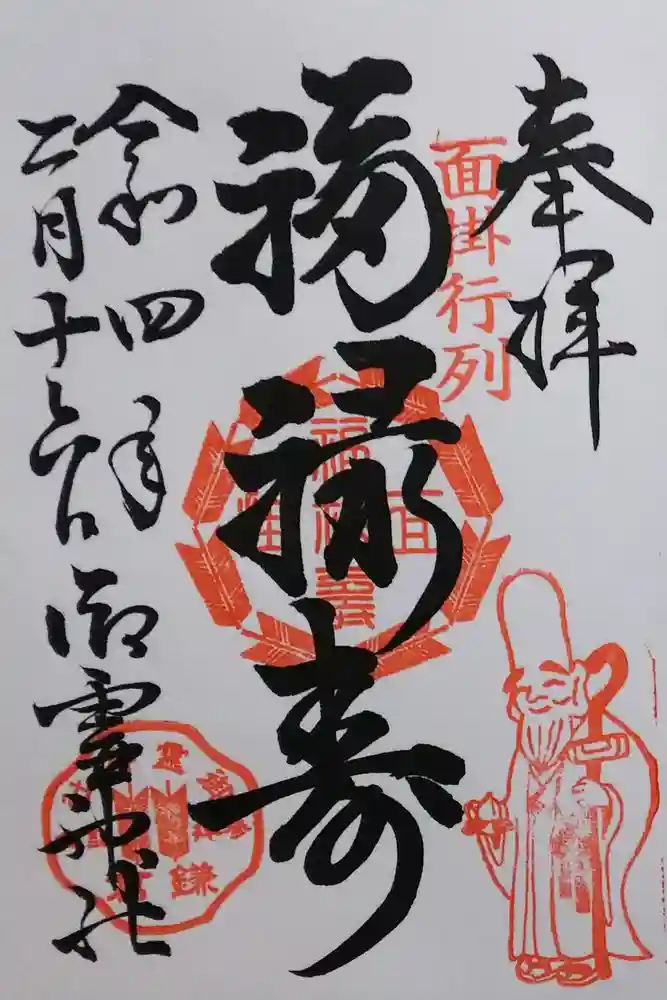 奉拝
面掛行列
福禄寿
令和四年
二月十六日
御霊神社
鎌倉